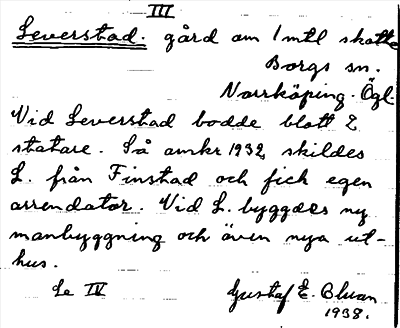 III
Leverstad. gård om 1 mtl skatte
Borgs sn.
Norrköping. Ögl.
Vid Leverstad bodde blott 2
statare. Så omkr 1932 skildes
L. från Finstad och fick egen
arrendator. Vid L. byggdes ny
manbyggning och även nya ut-
hus.
Se IV
Gustaf E. Bluan
1938.